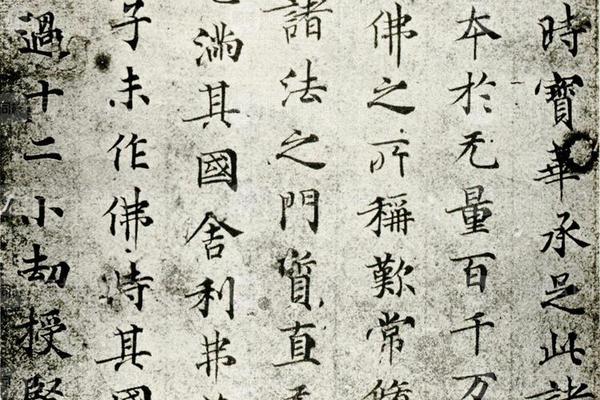 時寶華承足此諸
夲於无量百千万
佛之所稱歎常脩
諸法之門質直
滿其國舍利弗
子未作佛時其國
過十二小劫授堅